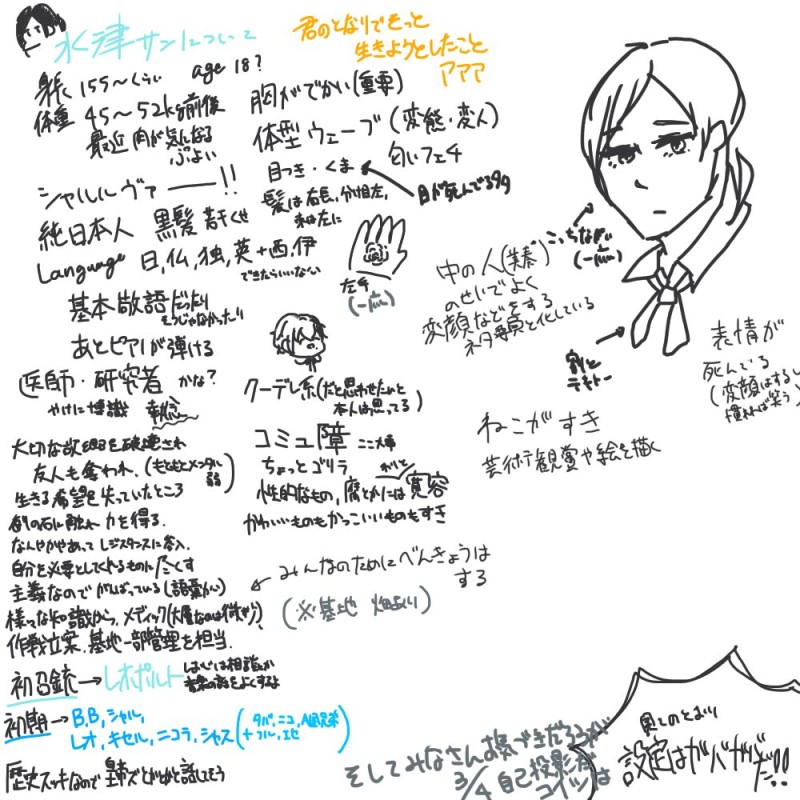 水津サンについて
君のとなりでもっと
生きようとしたこと
アアア
身長 155〜くらい age 18?
体重 45〜52kg前後
最近肉が気になる
ぷよい
胸がでかい(重要)
体型ウェーブ (変態・変人)
匂いフェチ
目つき・くま
目が死んでる
髪は右長、分け目左、
シャルルヴァ――!!
純日本人 黒髪 若干くせ
Language 日,仏,独,英+西,伊
できたらいいなない
左手
(一応)
基本敬語だったり
もうじゃなかったり
あとピアノが弾ける
医師・研究者 かな?
やけに博識 執念
クーデレ系(だと思わせたいと
本人は思ってる)
コミュ障 ここ大事
ちょっとゴリラ
わりと
性的なもの,腐とかには寛容
かわいいものもかっこいいものもすき
こっちなが
(一応)
中の人
のせいでよく
変顔などをする
ネタ要員と化している
割と
テキトー
表情が
死んでる
(変顔はするし
慣れば笑う)
ねこがすき
芸術観賞や絵を描く
大切な故郷を破壊され
友人も奪われ、(もともとメンタル
弱)
生きる希望を失っていたところ
石に触れ力を得る.
なんやかやあってレジスタンスに加入.
自分を必要としてくれるものに尽くす
主義なのでがんばっている(語彙力)
様々な知識から、メディック
作戦立案、基地一部管理を担当.
みんなのためにべんきょうは
する
(※基地 畑あり)
初召銃→レオポルト
初期→B.B,シャル,
レオ,キセル,ニコラ,シャス
歴史スッキなので
そしてみなさんお気づきだろうが
3/4 自己投影な
コイツは
見てのとおり
設定はガバガバだ!!